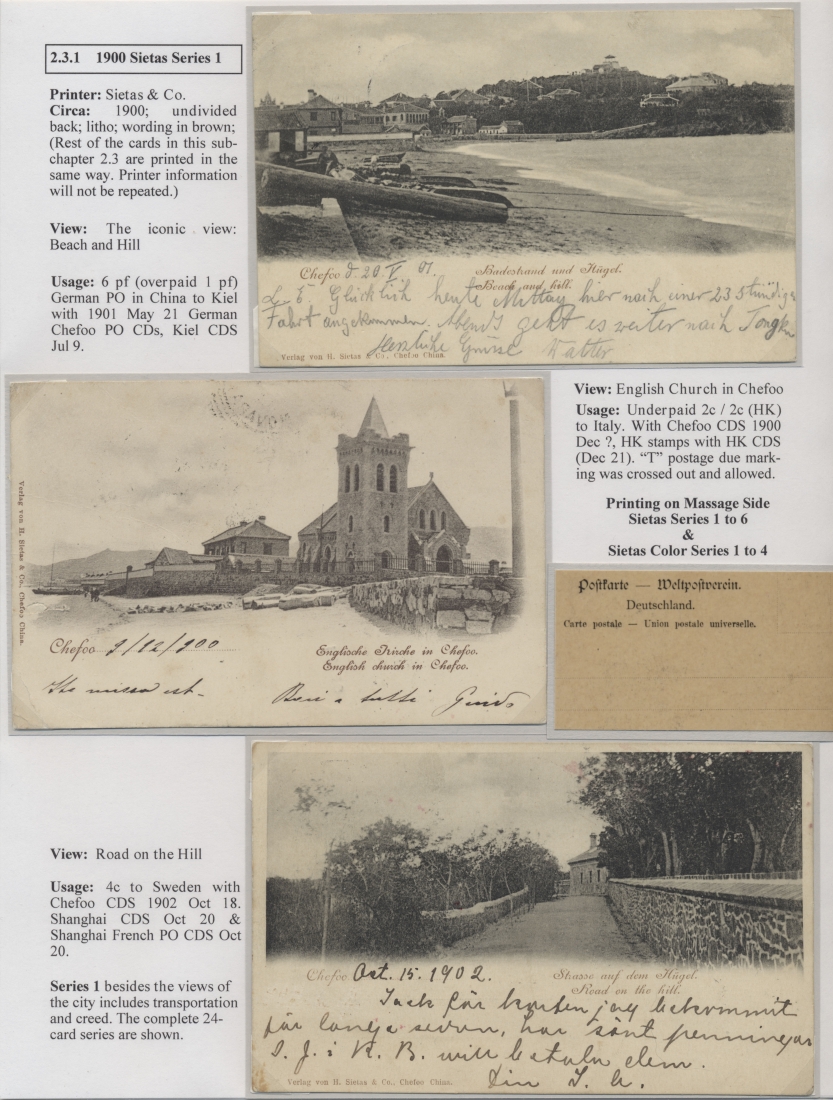 2.3.1 1900 Sietas Series 1
Printer: Sietas & Co.
Circa: 1900; undivided
back; litho; wording in brown;
(Rest of the cards in this sub-
chapter 2.3 are printed in the
same way. Printer information
will not be repeated.)
View: The iconic view:
Beach and Hill
Usage: 6 pf (overpaid 1 pf)
German PO in China to Kiel
with 1901 May 21 German
Chefoo PO CDs, Kiel CDS
Jul 9.
Chefoo d 20 V 01.
Badestrand und Hügel.
Beach and hill.
L. E. Glücklich heute Mittag hier nach einer 23 stündige
Fahrt angekommen. Abends geht es weiter nach Tongku
Herzliche Grüsse Walter
Verlag von H. Sietas & Co., Chefoo China.
View: English Church in Chefoo
Usage: Underpaid 2c / 2c (HK)
to Italy. With Chefoo CDS 1900
Dec ?, HK stamps with HK CDS
(Dec 21). “T” postage due mark-
ing was crossed out and allowed.
Printing on Massage Side
Sietas Series 1 to 6
&
Sietas Color Series 1 to 4
Verlag von H. Sietas & Co., Chefoo China.
Chefoo 9/12/900
Englische Kirche in Chefoo.
English church in Chefoo.
Ite missa est. Baci a tutti Guido
Postkarte — Weltpostverein.
Deutschland.
Carte postale — Union postale universelle.
View: Road on the Hill
Usage: 4c to Sweden with
Chefoo CDS 1902 Oct 18.
Shanghai CDS Oct 20 &
Shanghai French PO CDS Oct
20.
Series 1 besides the views of
the city includes transportation
and creed. The complete 24-
card series are shown.
Chefoo Oct. 15. 1902.
Strasse auf dem Hügel.
Road on the hill.
Tack för korten jag bekommit
för länge sedan, har sänt penningar
S. J. i K. B. will betala dem.
Din
Verlag von H. Sietas & Co., Chefoo China.